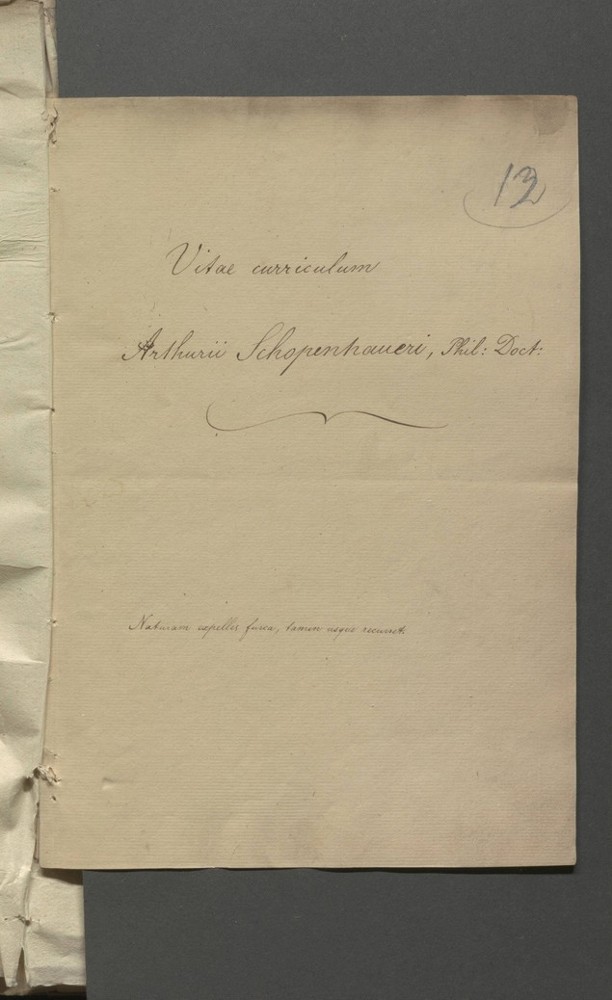 13
Vitae curriculum
Arthurii Schopenhaueri, Phil: Doct:
Naturam expelles furca, tamen usque recurret.